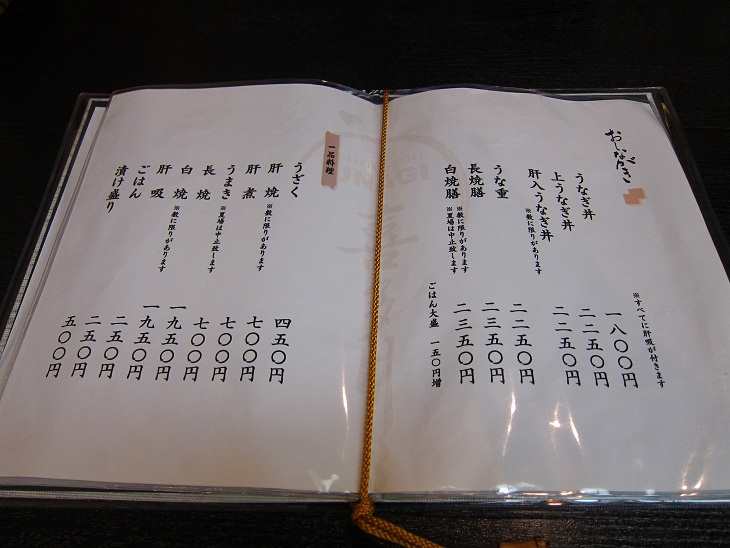 おしながき
※すべてに肝吸が付きます
うなぎ丼 一八〇〇円
上うなぎ丼 二二五〇円
肝入うなぎ丼 ※数に限りがあります 二二五〇円
うな重 二二五〇円
長焼膳 二三五〇円
白焼膳 ※数に限りがあります ※夏場は中止致します 二三五〇円
ごはん大盛 一五〇円増
一品料理
うざく 四五〇円
肝焼 ※数に限りがあります 七〇〇円
肝煮 ※数に限りがあります 七〇〇円
うまき 七〇〇円
長焼 ※夏場は中止致します 一九五〇円
白焼 ※数に限りがあります 一九五〇円
肝吸 二五〇円
ごはん 二五〇円
漬け盛り 五〇〇円